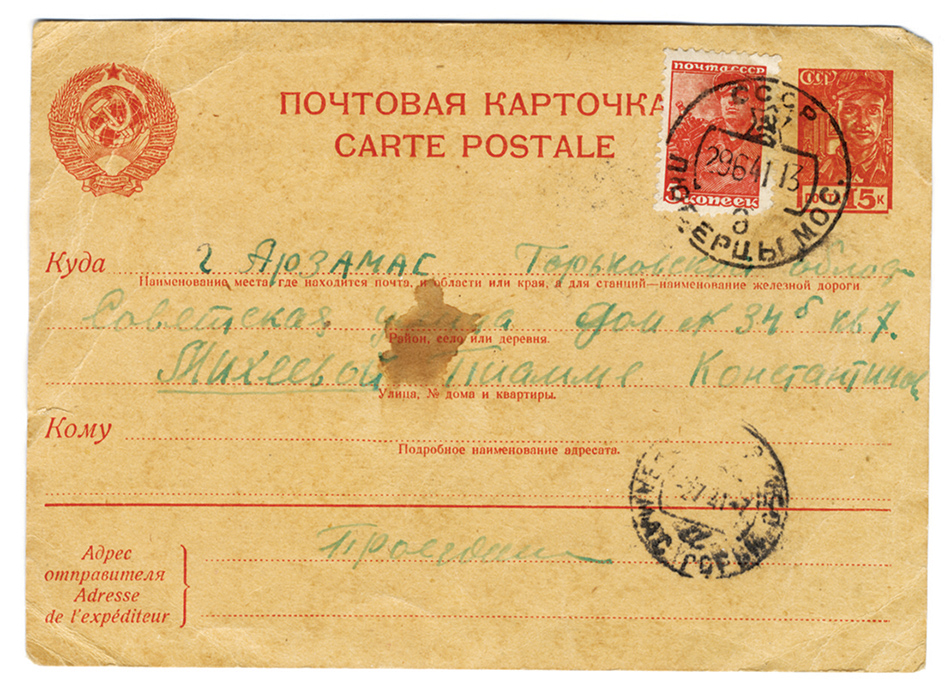 ПОЧТОВАЯ КАРТОЧКА
CARTE POSTALE
ПОЧТА СССР
5 копеек
СССР
ПОЧТА 15 К
СССР
29 6 41 13
ЛЮБЕРЦЫ МОС.
Куда г Арзамас Горьковской облас
Наименование места, где находится почта, и области или края, а для станций—наименование железной дороги
Советская улица дом № 34б кв 7.
Район, село или деревня.
Михеевой Тиамме Константинов
Улица, № дома и квартиры.
Кому
Подробное наименование адресата.
2 7 41
Адрес
отправителя
Adresse
de l'expéditeur